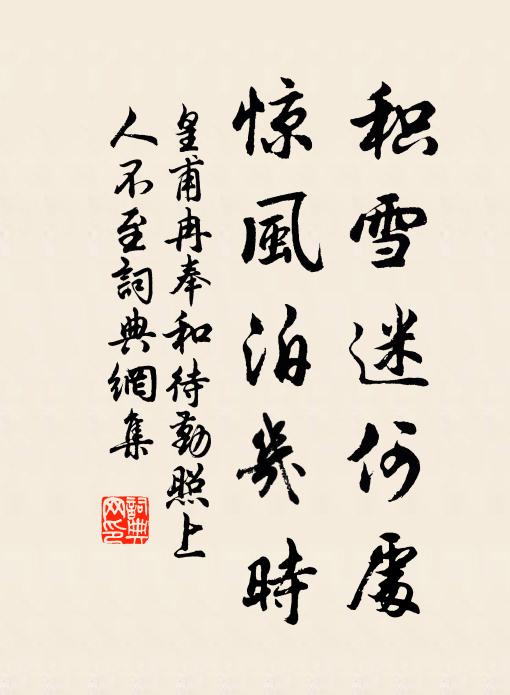 积雪迷何處
惊風泊幾時
皇甫冉奉和待勤照上
人不至詞典網集
詞典網印